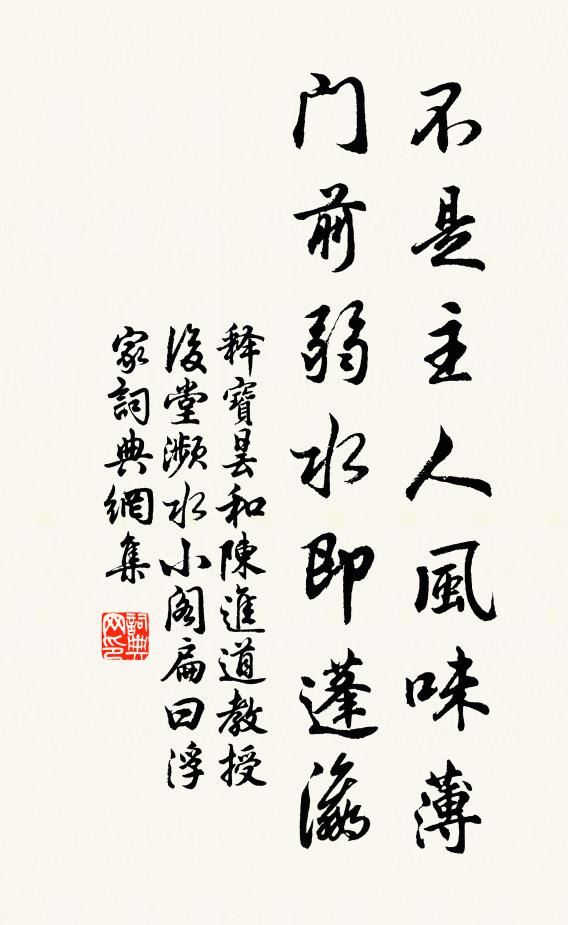 不是主人風味薄
门前弱水即蓬瀛
释寶曇和陳進道教授
後堂瀕水小阁扁曰浮
家詞典網集
詞典网印